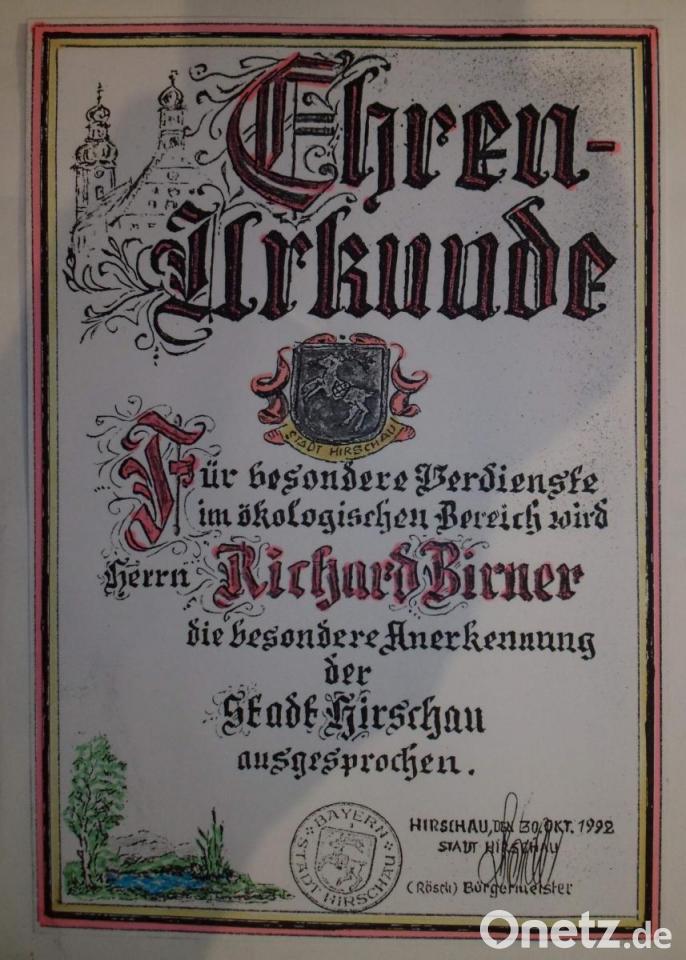 Ehren-
Urkunde
STADT HIRSCHAU
Für besondere Verdienste
im ökologischen Bereich wird
Herrn Richard Birner
die besondere Anerkennung
der
Stadt Hirschau
ausgesprochen.
HIRSCHAU, DEN 30. OKT. 1992
STADT HIRSCHAU
(Rösch) Bürgermeister
BAYERN
STADT HIRSCHAU
Onetz.de